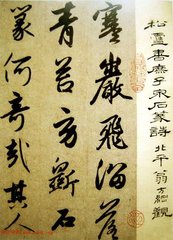 松雪書庶子泉石篆詩 北平翁方綱觀
寒巖飛溜落
青苔方斲石
篆何奇哉其人